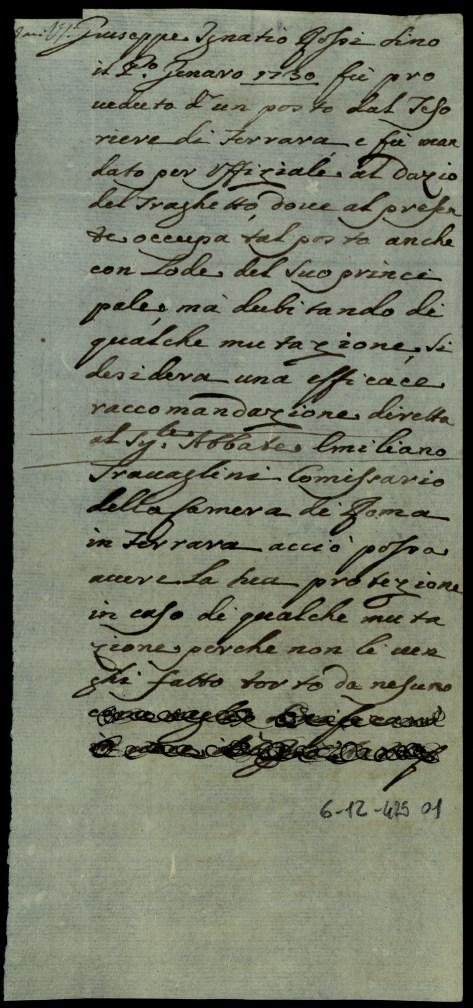 Giuseppe Ignatio Rossi sino
il P.mo Genaro 1730 fù pro
ueduto d'un posto dal Teso
riere di Ferrara e fù man
dato per Offiziale al Dazio
del Traghetto, doue al presen
te occupa tal posto anche
con Lode del Suo princi
pale, mà dubitando di
qualche mutazione, si
desidera una efficace
raccomandazione diretta
al Sig.re Abbate Emiliano
Trauaglini Comissario
della Camera di Roma
in Ferrara acciò possa
auere La sua protezione
in caso di qualche muta
zione perche non li uen
ghi fatto torto da nesuno
6-12-425 01